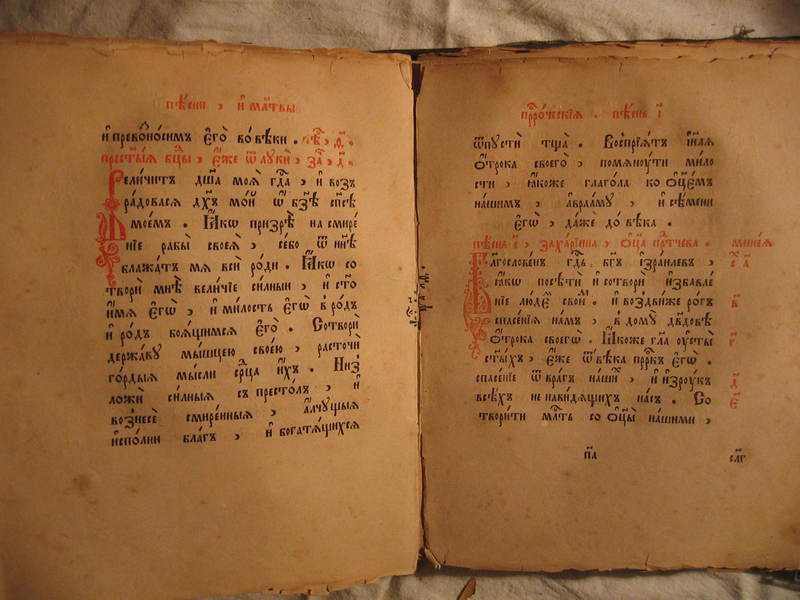 пѣ́сни , и҆ мл҃твы
и҆ превоз̾но́симъ є҆го̀ во́ вѣки . пѣ́ , д҃.
прест҃ы́ѧ бц҃ы , є҆́же ѿ лꙋки̂ , за҃ , д҃ .
Вели́читъ дш҃а моѧ̀ гд҃а , и҆ возъ
ра́довасѧ дх҃ъ мо́и ѡ҆ бз҃ѣ сп҃сѣ
мое́мъ . Ꙗ҆́кѡ призрѣ̀ на смире́
нїе рабы̀ своеѧ̀ , се́бо ѿ нн҃ѣ
блажа́тъ мѧ всѝ ро́ди . Ꙗ҆́кѡ со
творѝ мнѣ̀ вели́чїе си́лныи , и҆ ст҃о
и҆́мѧ є҆гѡ̀ , и҆ ми́лость є҆гѡ̀ в ро́дъ
и҆ ро́дъ боѧ́щимсѧ є҆го̀ . Сотворѝ
держа́вꙋ мы́шцею свое́ю , расточѝ
го́рдыѧ мы́сли ср҃ца и҆́хъ . Низ̾
ложѝ си́лныѧ съ престо́лъ , и҆
вознесѐ смире́нныѧ , а҆́лчꙋщыѧ
и҆спо́лни бла́гъ , и҆ богатѧ́щихсѧ
прⷪ҇рческїѧ . пѣ́снь і҃
ѿпꙋстѝ тща̀ . Воспрїѧ́тъ і҆и҃лѧ
ѻ҆́трока своего̀ , помѧнꙋ́ти ми́ло
сти , ꙗ҆́коже глаго́ла ко ѻ҆ц҃е́мъ
на́шымъ , а҆враа́мꙋ , и҆ сѣ́мени
є҆гѡ̀ , да́же до вѣ́ка .
пѣ́снь і҃ , заха́рїина , ѻ҆ц҃а̀ прⷣтчева . мине́ѧ
Благослове́нъ гд҃ь , бг҃ъ і҆зра́илевъ ,
ꙗ҆́кѡ посѣтѝ и҆ сотворѝ и҆збавле́
нїе люде́мъ свои̂мъ . и҆ воздви́же ро́гъ
спасе́нїѧ на́мъ , в до́мꙋ дв҃довѣ
ѻ҆́трока своегѡ̀ . Ꙗ҆́коже гл҃а ᲂу҆сты̀
ст҃ы́хъ , є҆́же ѿ вѣ́ка прⷪ҇ркъ є҆гѡ̀ .
спасе́нїе ѿ вра́гъ на́шихъ , и҆ и҆зрꙋ́къ
всѣ́хъ ненави́дѧщихъ на́съ . Со
твори́ти ми́лть со ѻ҆ц҃ы̀ на́шими ,
в҃
г҃
д҃
є҃
п҃а
сл҃г